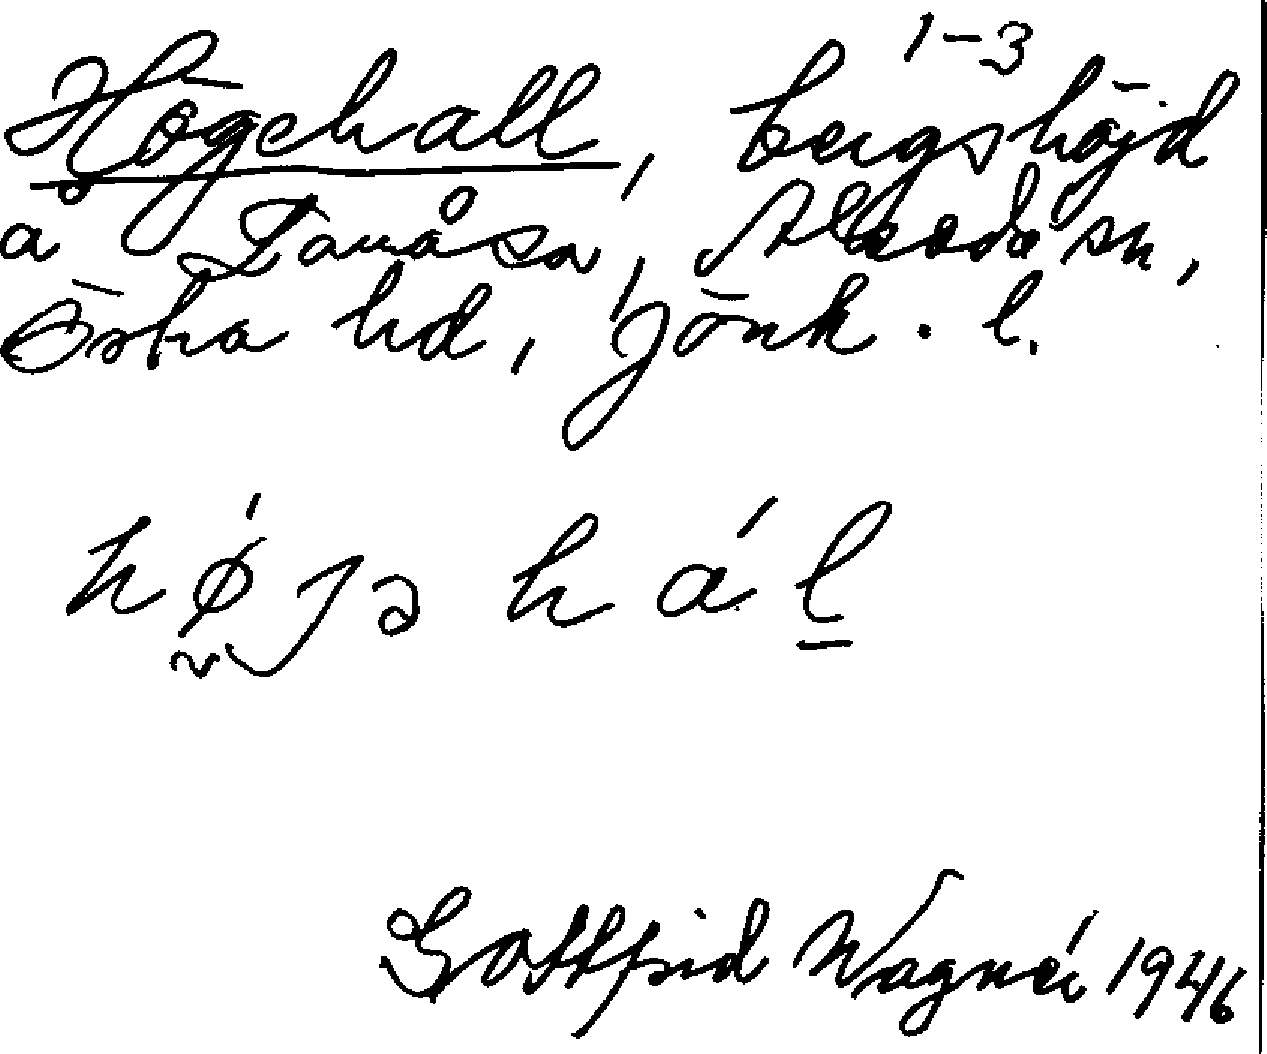 1-3
Högehall, bergshöjd
å Tanåsa, Alseda sn,
Östra hd, Jönk. l.
hǿȷə hál
Gottfrid Wagnér 1946